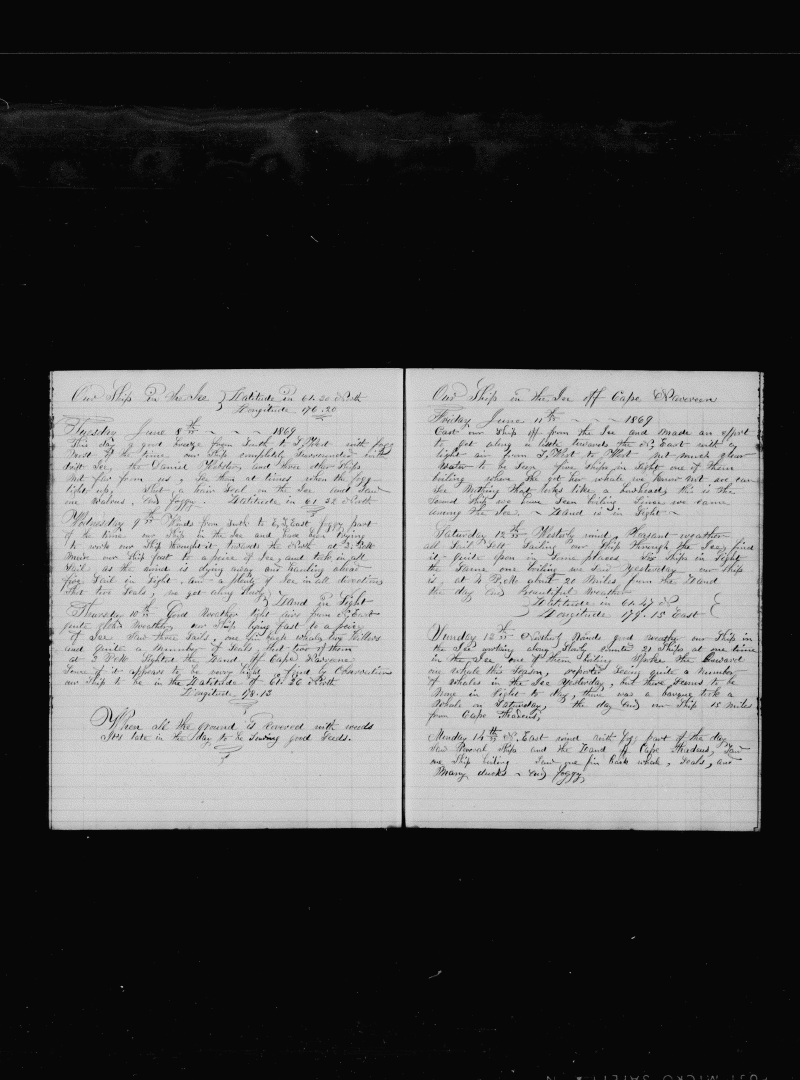 Our Ship in the Ice } Latitude in 61.20 North
Longitude 176.20
Tuesday June 8th - - - 1869
This day a good breeze from South to S. West with fogg
Most of the time our Ship completely Surrounded with
drift Ice, the Daniel Webster, and three other Ships
Not far from us, See them at times when the fogg
light up, Shot a hair Seal on the Ice and Saw
one Walrus, End foggy. Latitude in 61.22 North
Wednesday 9th Winds from South to E, S, East, foggy part
of the time our Ship in the Ice and have been trying
to work our Ship through it towards the North at 3. P.M.
our Ship fast to a piece of Ice, and took in all
Sail as the wind is dying away and hauling ahead
five Sail in Sight, and a plenty of Ice in all directions
Shot two Seals, we get along Slowly } Land in Sight
Thursday 10th Good Weather light airs from N, East
quite good Weather, our Ship lying fast to a piece
of Ice Saw three Sails, one fin back whale, two Killers
and quite a Number of Seals Shot two of them
at 2 P.M. Sighted the Land off Cape
Some of it appears to be very high find by Observations
our Ship to be in the Latitude of 61.26 North
Longitude 178.13
When all the ground is covered with weeds
It's late in the day to be Sowing good Seeds.
Our Ship in the Ice off Cape
Friday June 11th - - 1869
Cast our Ship off from the Ice and made an effort
to get along a little towards the N, East with a
light air from S, West to West not much clear
Water to be Seen five ships in Sight one of them
boiling where she got her whale we know not we can
See Nothing that looks like a bowhead, this is the
Second Ship we have Seen boiling Since we came
among the Ice. - Land in in Sight -
Saturday 12th Westerly wind, Pleasant weather
all Sail Set Sailing our Ship through the Ice, find
it quite open in Some places Six Ships in Sight
the Same one boiling we Saw Yesterday our Ship
is, at 4. P.M. about 20 Miles from the Land
the day End Beautiful Weather
} Latitude in 61.27 N
} Longitude 179.15 East {
Sunday 13th Winds good weather our Ship in
the Ice working along Slowly counted 21 Ships at one time
in the Ice one of them boiling Spoke the
one whale this Season, reported Seeing quite a Number
of Whales in the Ice Yesterday, but there Seems to be
None in Sight to day, there was a barque took a
Whale on Saturday, the day End our Ship 15 Miles
from Cape
Monday 14th N, East wind with fog part of the day
Saw Several Ships and the Land off Cape Saw
one Ship boiling Saw one fin back whale, Seals, and
Many ducks - End foggy,